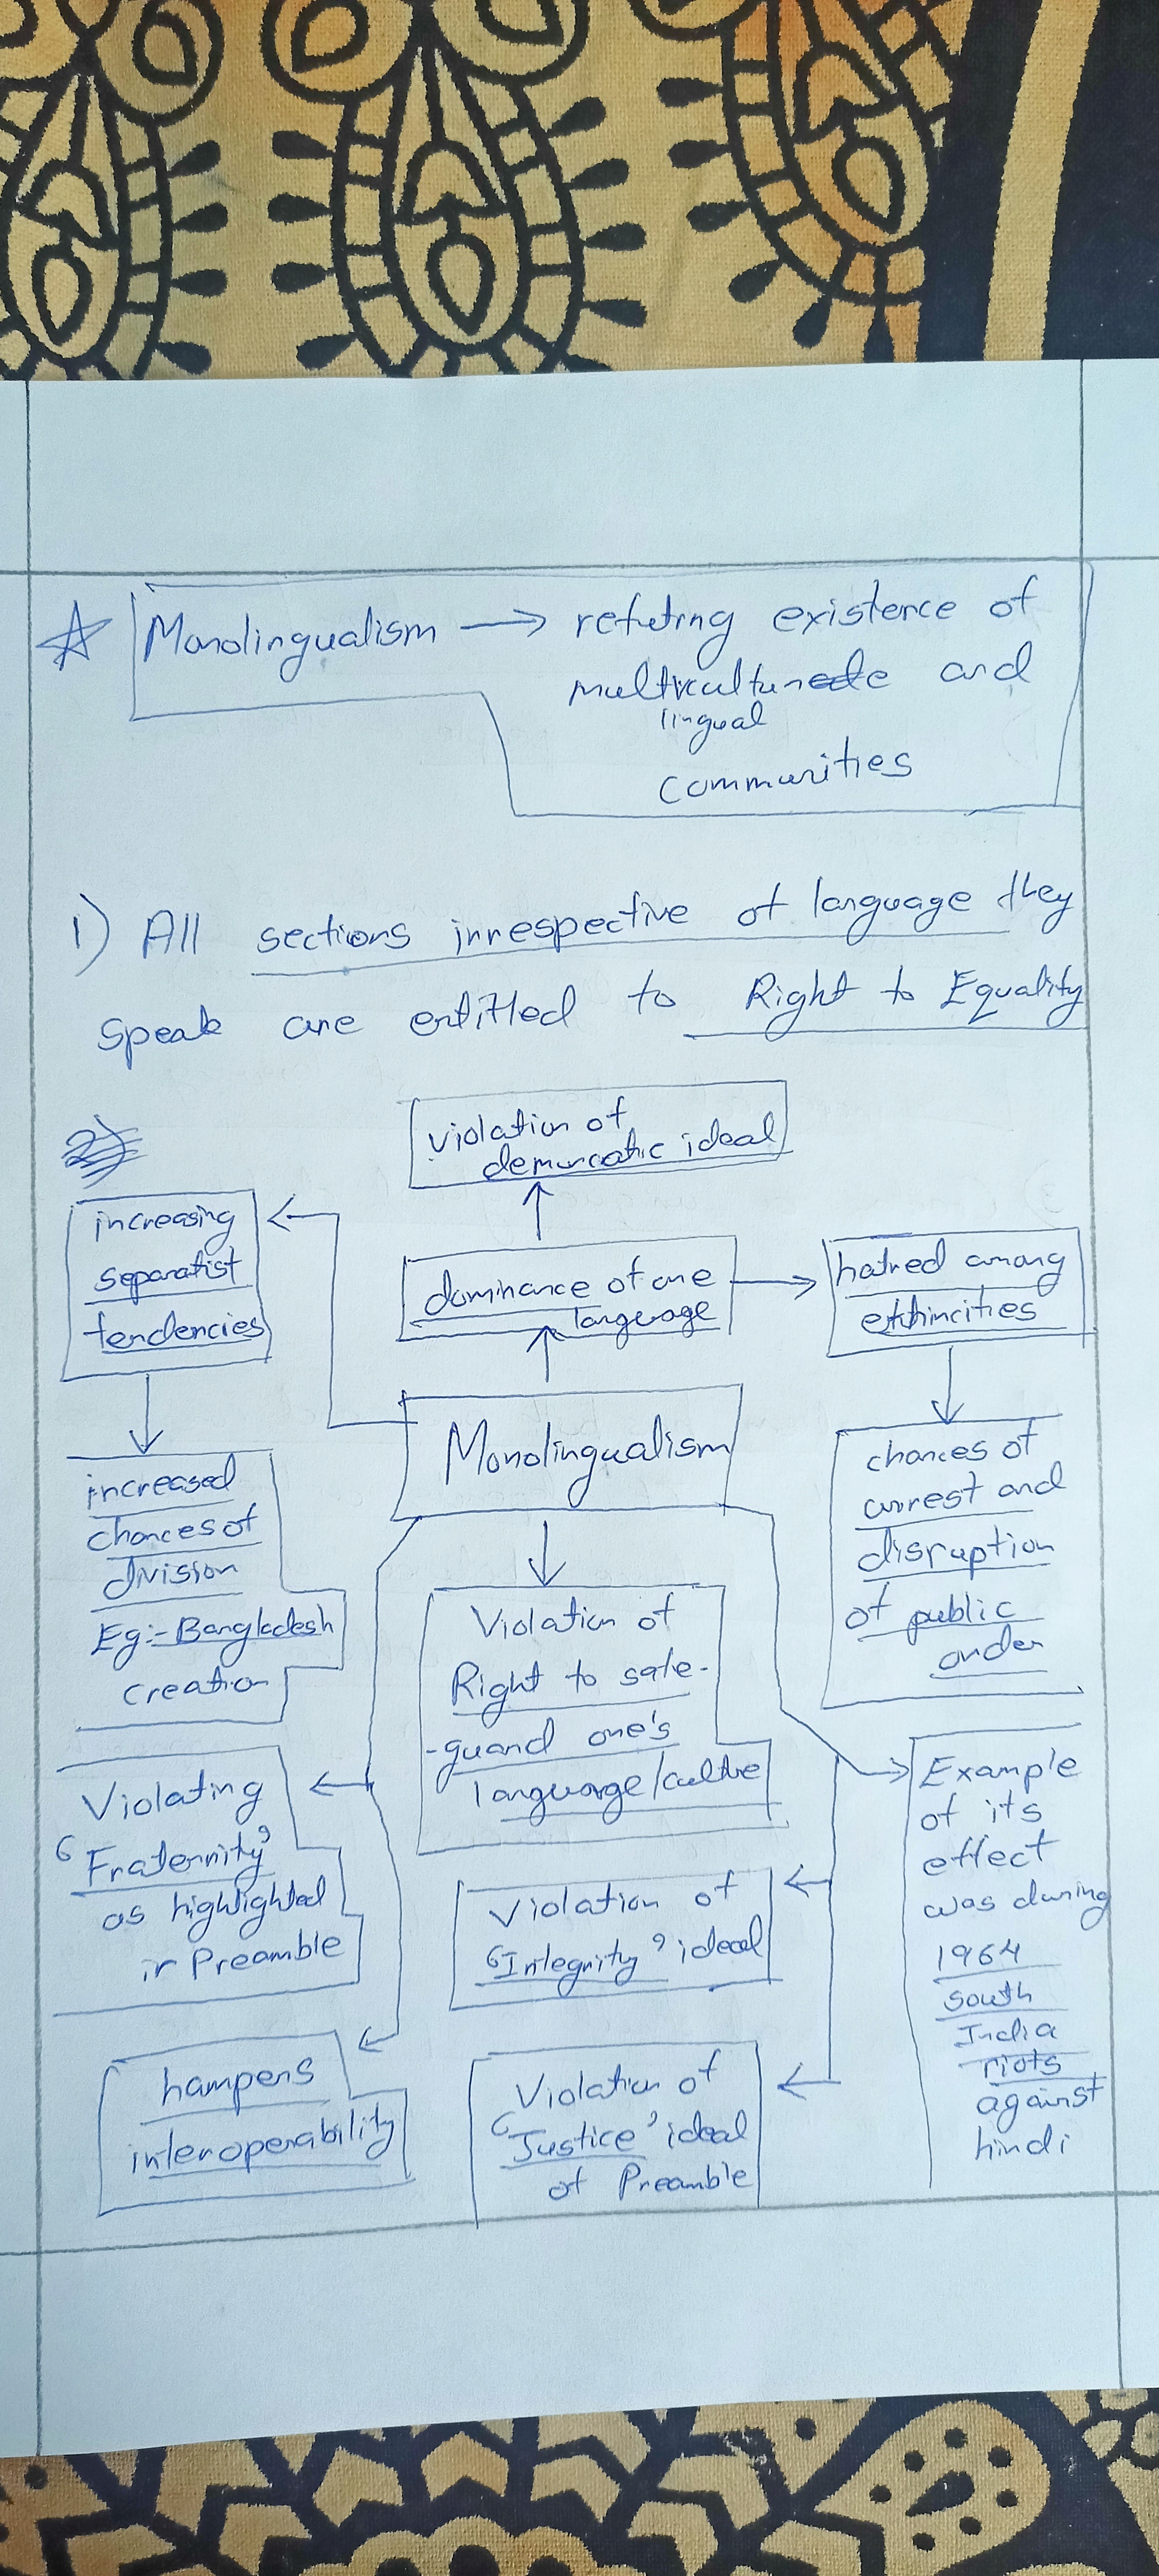 Monolingualism → refuting existence of
multicultural and
lingual
communities
1) All sections irrespective of language they
speak are entitled to Right to Equality
2)
violation of
democratic ideal
increasing
separatist
tendencies
dominance of one
language
hatred among
ethnicities
Monolingualism
increased
chances of
division
Eg:- Bangladesh
creation
chances of
unrest and
disruption
of public
order
Violation of
Right to safe-
-guard one's
language/culture
Violating
'Fraternity'
as highlighted
in Preamble
Violation of
'Integrity' ideal
Example
of its
effect
was during
1964
south
India
riots
against
hindi
hampers
interoperability
Violation of
'Justice' ideal
of Preamble